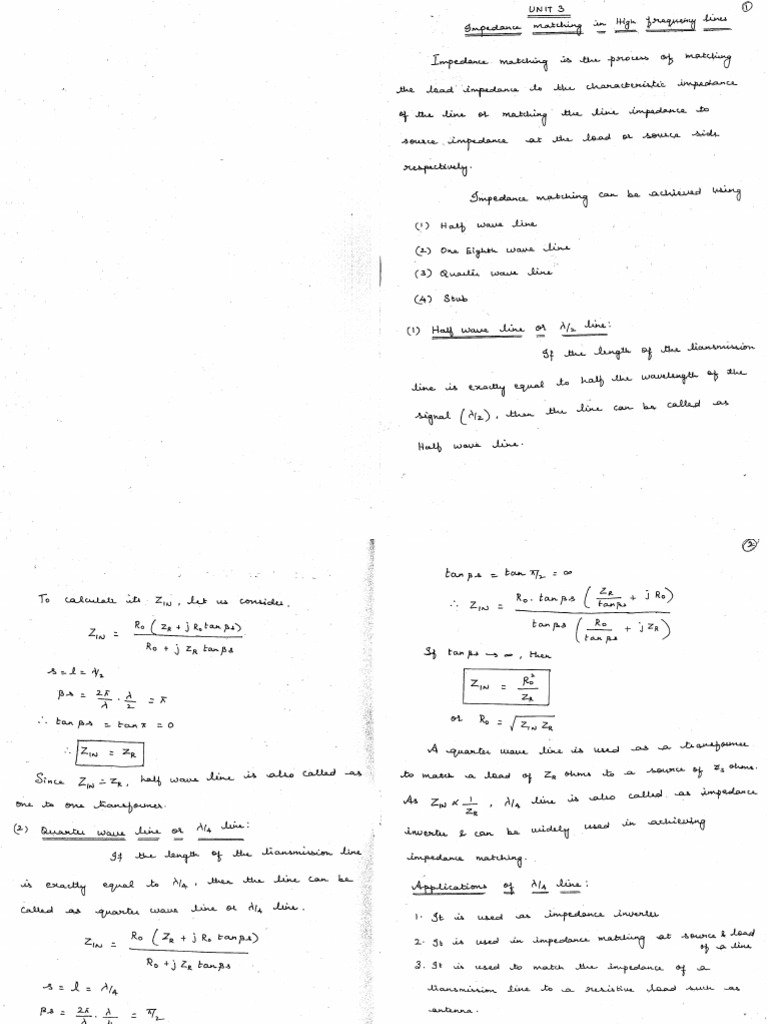 ①
UNIT 3
Impedance matching in High frequency lines
Impedance matching is the process of matching
the load impedance to the characteristic impedance
of the line or matching the line impedance to
source impedance at the load or source side
respectively.
Impedance matching can be achieved using
(1) Half wave line
(2) One Eighth wave line
(3) Quarter wave line
(4) Stub
(1) Half wave line or λ/2 line:
If the length of the transmission
line is exactly equal to half the wavelength of the
signal (λ/2), then the line can be called as
Half wave line.
To calculate its Z_IN, let us consider.
Z_IN = R₀ (Z_R + j R₀ tan βs) / R₀ + j Z_R tan βs
s = l = λ/2
βs = 2π/λ · λ/2 = π
∴ tan βs = tan π = 0
∴ Z_IN = Z_R
Since Z_IN = Z_R, half wave line is also called as
one to one transformer.
(2) Quarter wave line or λ/4 line:
If the length of the transmission line
is exactly equal to λ/4, then the line can be
called as quarter wave line or λ/4 line.
Z_IN = R₀ (Z_R + j R₀ tan βs) / R₀ + j Z_R tan βs
s = l = λ/4
βs = 2π/λ · λ/4 = π/2
②
tan βs = tan π/2 = ∞
∴ Z_IN = R₀ · tan βs (Z_R/tan βs + j R₀) / tan βs (R₀/tan βs + j Z_R)
If tan βs → ∞, then
Z_IN = R₀²/Z_R
or R₀ = √Z_IN Z_R
A quarter wave line is used as a transformer
to match a load of Z_R ohms to a source of Z_s ohms.
As Z_IN ∝ 1/Z_R, λ/4 line is also called as impedance
inverter & can be widely used in achieving
impedance matching.
Applications of λ/4 line:
1. It is used as impedance inverter
2. It is used in impedance matching at source & load
of a line
3. It is used to match the impedance of a
transmission line to a resistive load such as
antenna.